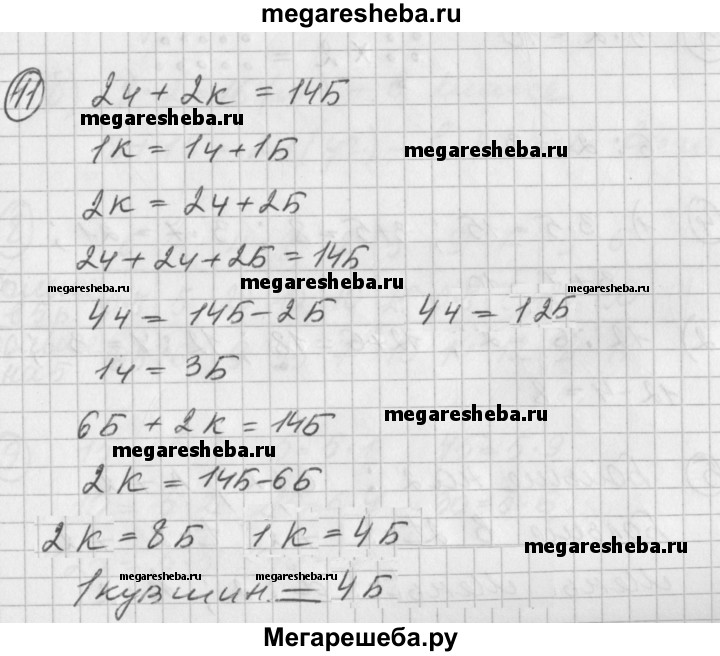 megaresheba.ru
11 2ч + 2к = 14Б
megaresheba.ru
1к = 1ч + 1Б megaresheba.ru
2к = 2ч + 2Б
2ч + 2ч + 2Б = 14Б
megaresheba.ru megaresheba.ru megaresheba.ru
4ч = 14Б - 2Б 4ч = 12Б
1ч = 3Б
6Б + 2к = 14Б megaresheba.ru
megaresheba.ru
2к = 14Б - 6Б
2к = 8Б 1к = 4Б megaresheba.ru
megaresheba.ru megaresheba.ru
1 кувшин = 4Б
Мегарешеба.ру